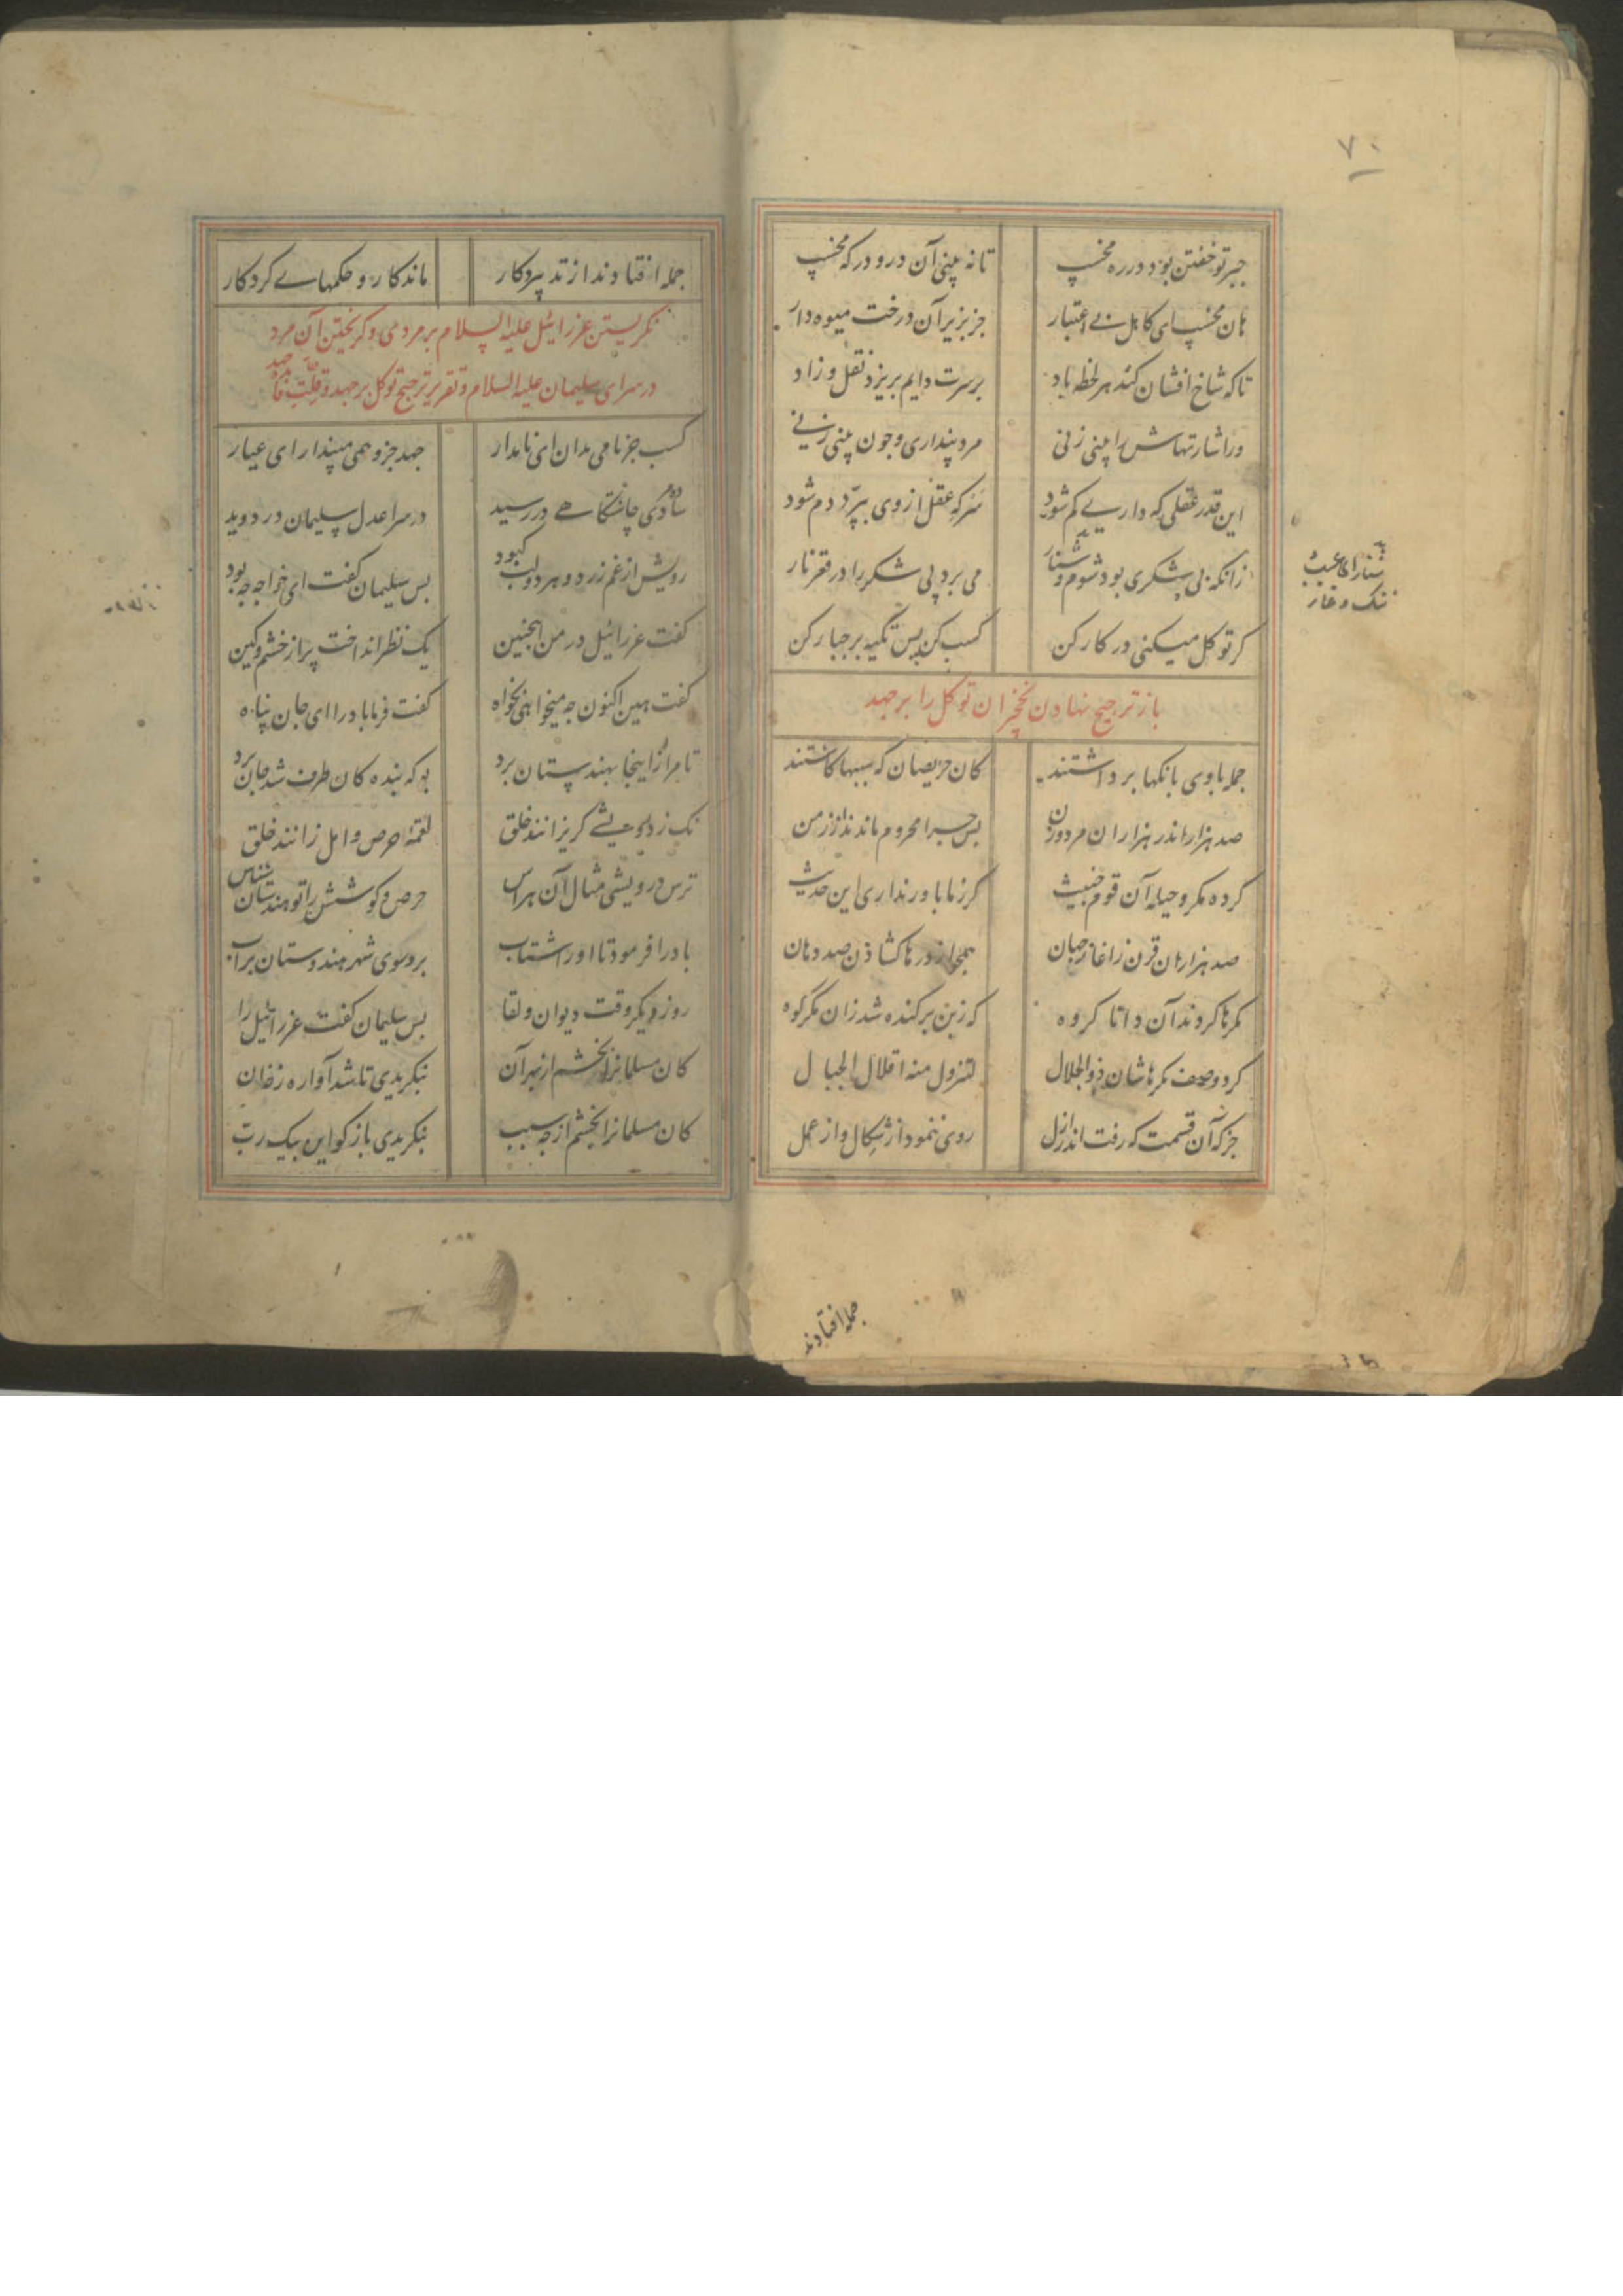 ۷۰
جبر تو خفتن بود در ره مخسپ تا نه بینی آن در و درکه مخسپ
هان مخسپ ای کاهل بی اعتبار جز بزیر آن درخت میوه دار
تا که شاخ افشان کند هر لحظه باد بر سرت دایم بریزد نقل و زاد
ور اشارتهاش را بینی زنی مرد پنداری و چون بینی زنی
این قدر عقلی که داری کم شود سر که عقل از وی بپرّد دم شود
زانکه بی شکری بود شوم و شنار می برد بی شکر را در قعر نار
کر توکل میکنی در کار کن کسب کن پس تکیه بر جبار کن
باز ترجیح نهادن نخجیران توکل را بر جهد
جمله با وی بانکها برداشتند کان حریصان که سببها کاشتند
صد هزار اندر هزاران مرد و زن بس چرا محروم ماندند از زمن
کرده مکر و حیله آن قوم خبیث کر زما باور نداری این حدیث
صد هزاران قرن ز اغاز جهان همچو اژدرها کشاده صد دهان
مکرها کردند آن دانا کروه که زبن برکنده شد زان مکر کوه
کرد وصف مکرهاشان ذو الجلال لتزول منه اقلال الجبال
جز که آن قسمت که رفت اندر ازل روی ننمود از شکال و از عمل
شنار ای عیب
ننک و عار
جمله افتادند
جمله افتادند از تدبیر و کار ماند کار و حکمهای کردکار
نکریستن عزرائیل علیه السلام بر مردمی و کریختن آن مرد
در سرای سلیمان علیه السلام و تقریر ترجیح توکل بر جهد و قلّت فایده جهد
کسب جز نامی مدان ای نامدار جهد جز وهمی مپندار ای عیار
ساده مردی چاشتکاهی در رسید در سرا عدل سلیمان در دوید
رویش از غم زرد و هر دو لب کبود بس سلیمان کفت ای خواجه چه بود
کفت عزرائیل در من اینچنین یک نظر انداخت پر از خشم و کین
کفت هین اکنون چه میخواهی بخواه کفت فرما باد را ای جان پناه
تا مرا زاینجا بهندستان برد بو که بنده کان طرف شد جان برد
نک ز درویشی کریزانند خلق لقمهٔ حرص و امل زانند خلق
ترس درویشی مثال آن هراس حرص و کوشش را تو هندستان شناس
باد را فرمود تا او را شتاب برد سوی شهر هندوستان بر آب
روز دیکر وقت دیوان و لقا بس سلیمان کفت عزرائیل را
کان مسلمانرا بخشم از بهر آن بنکریدی تا شد آواره ز خان
کان مسلمانرا بخشم از چه سبب بنکریدی باز کو ای پیک رب